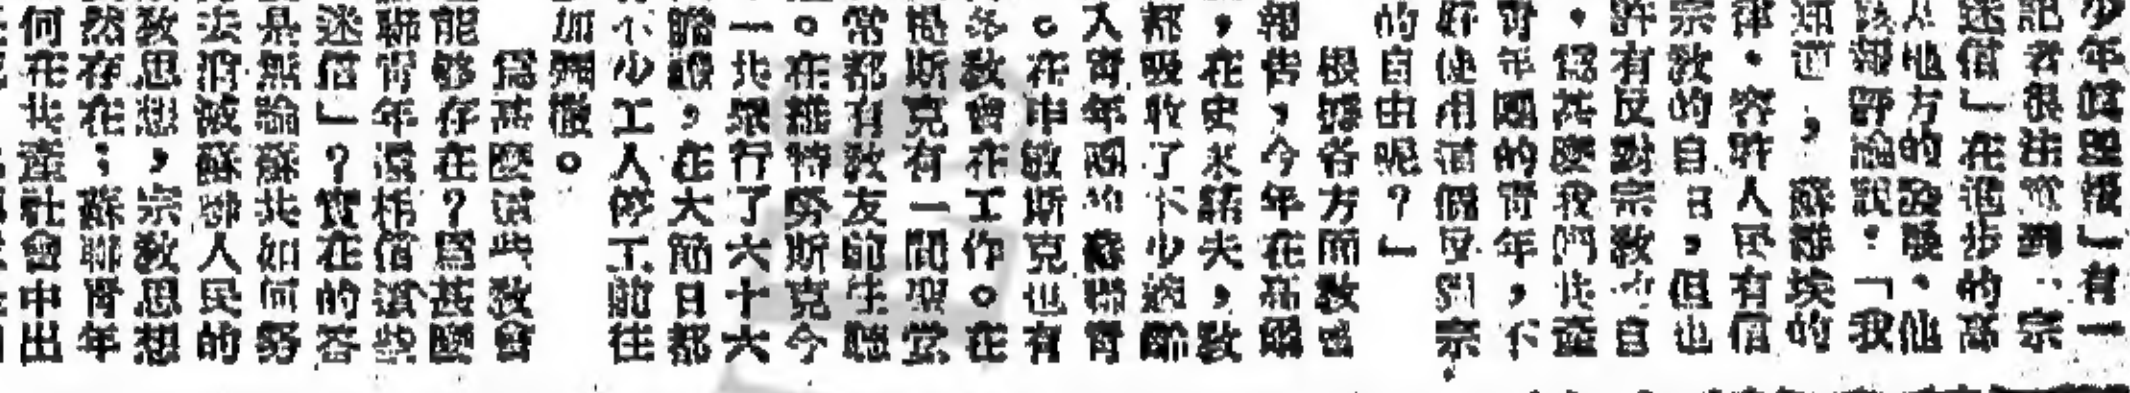 少年眞理報」有一
記者很注意到：宗
迷信」在進步的高
人地方的發展。他
該部評論說：「我
知道，蘇聯埃的
律。容許人民有信
宗教的自由，但也
許有反對宗教的自
。爲甚麽我們共產
青年團的青年，不
好使用這個反對宗
的自由呢？」
根據各方面教會
報告，今年在高爾
，在史永諾夫，教
都吸收了不少適齡
入青年團的蘇聯青
。在申敏斯克也有
教會在工作。在
提斯克有一間聖堂
常都有教友前往聽
。在維特勞斯克今
一共舉行了六十六
瞻禮，在大節日都
不少工人修工前往
加彌撒。
爲甚麽這些教會
能够存在？爲甚麽
聯青年還相信這些
迷信」？實在的答
是無論蘇共如何努
去消滅蘇聯人民的
教思想，宗教思想
然存在；蘇聯青年
何在共產社會中出